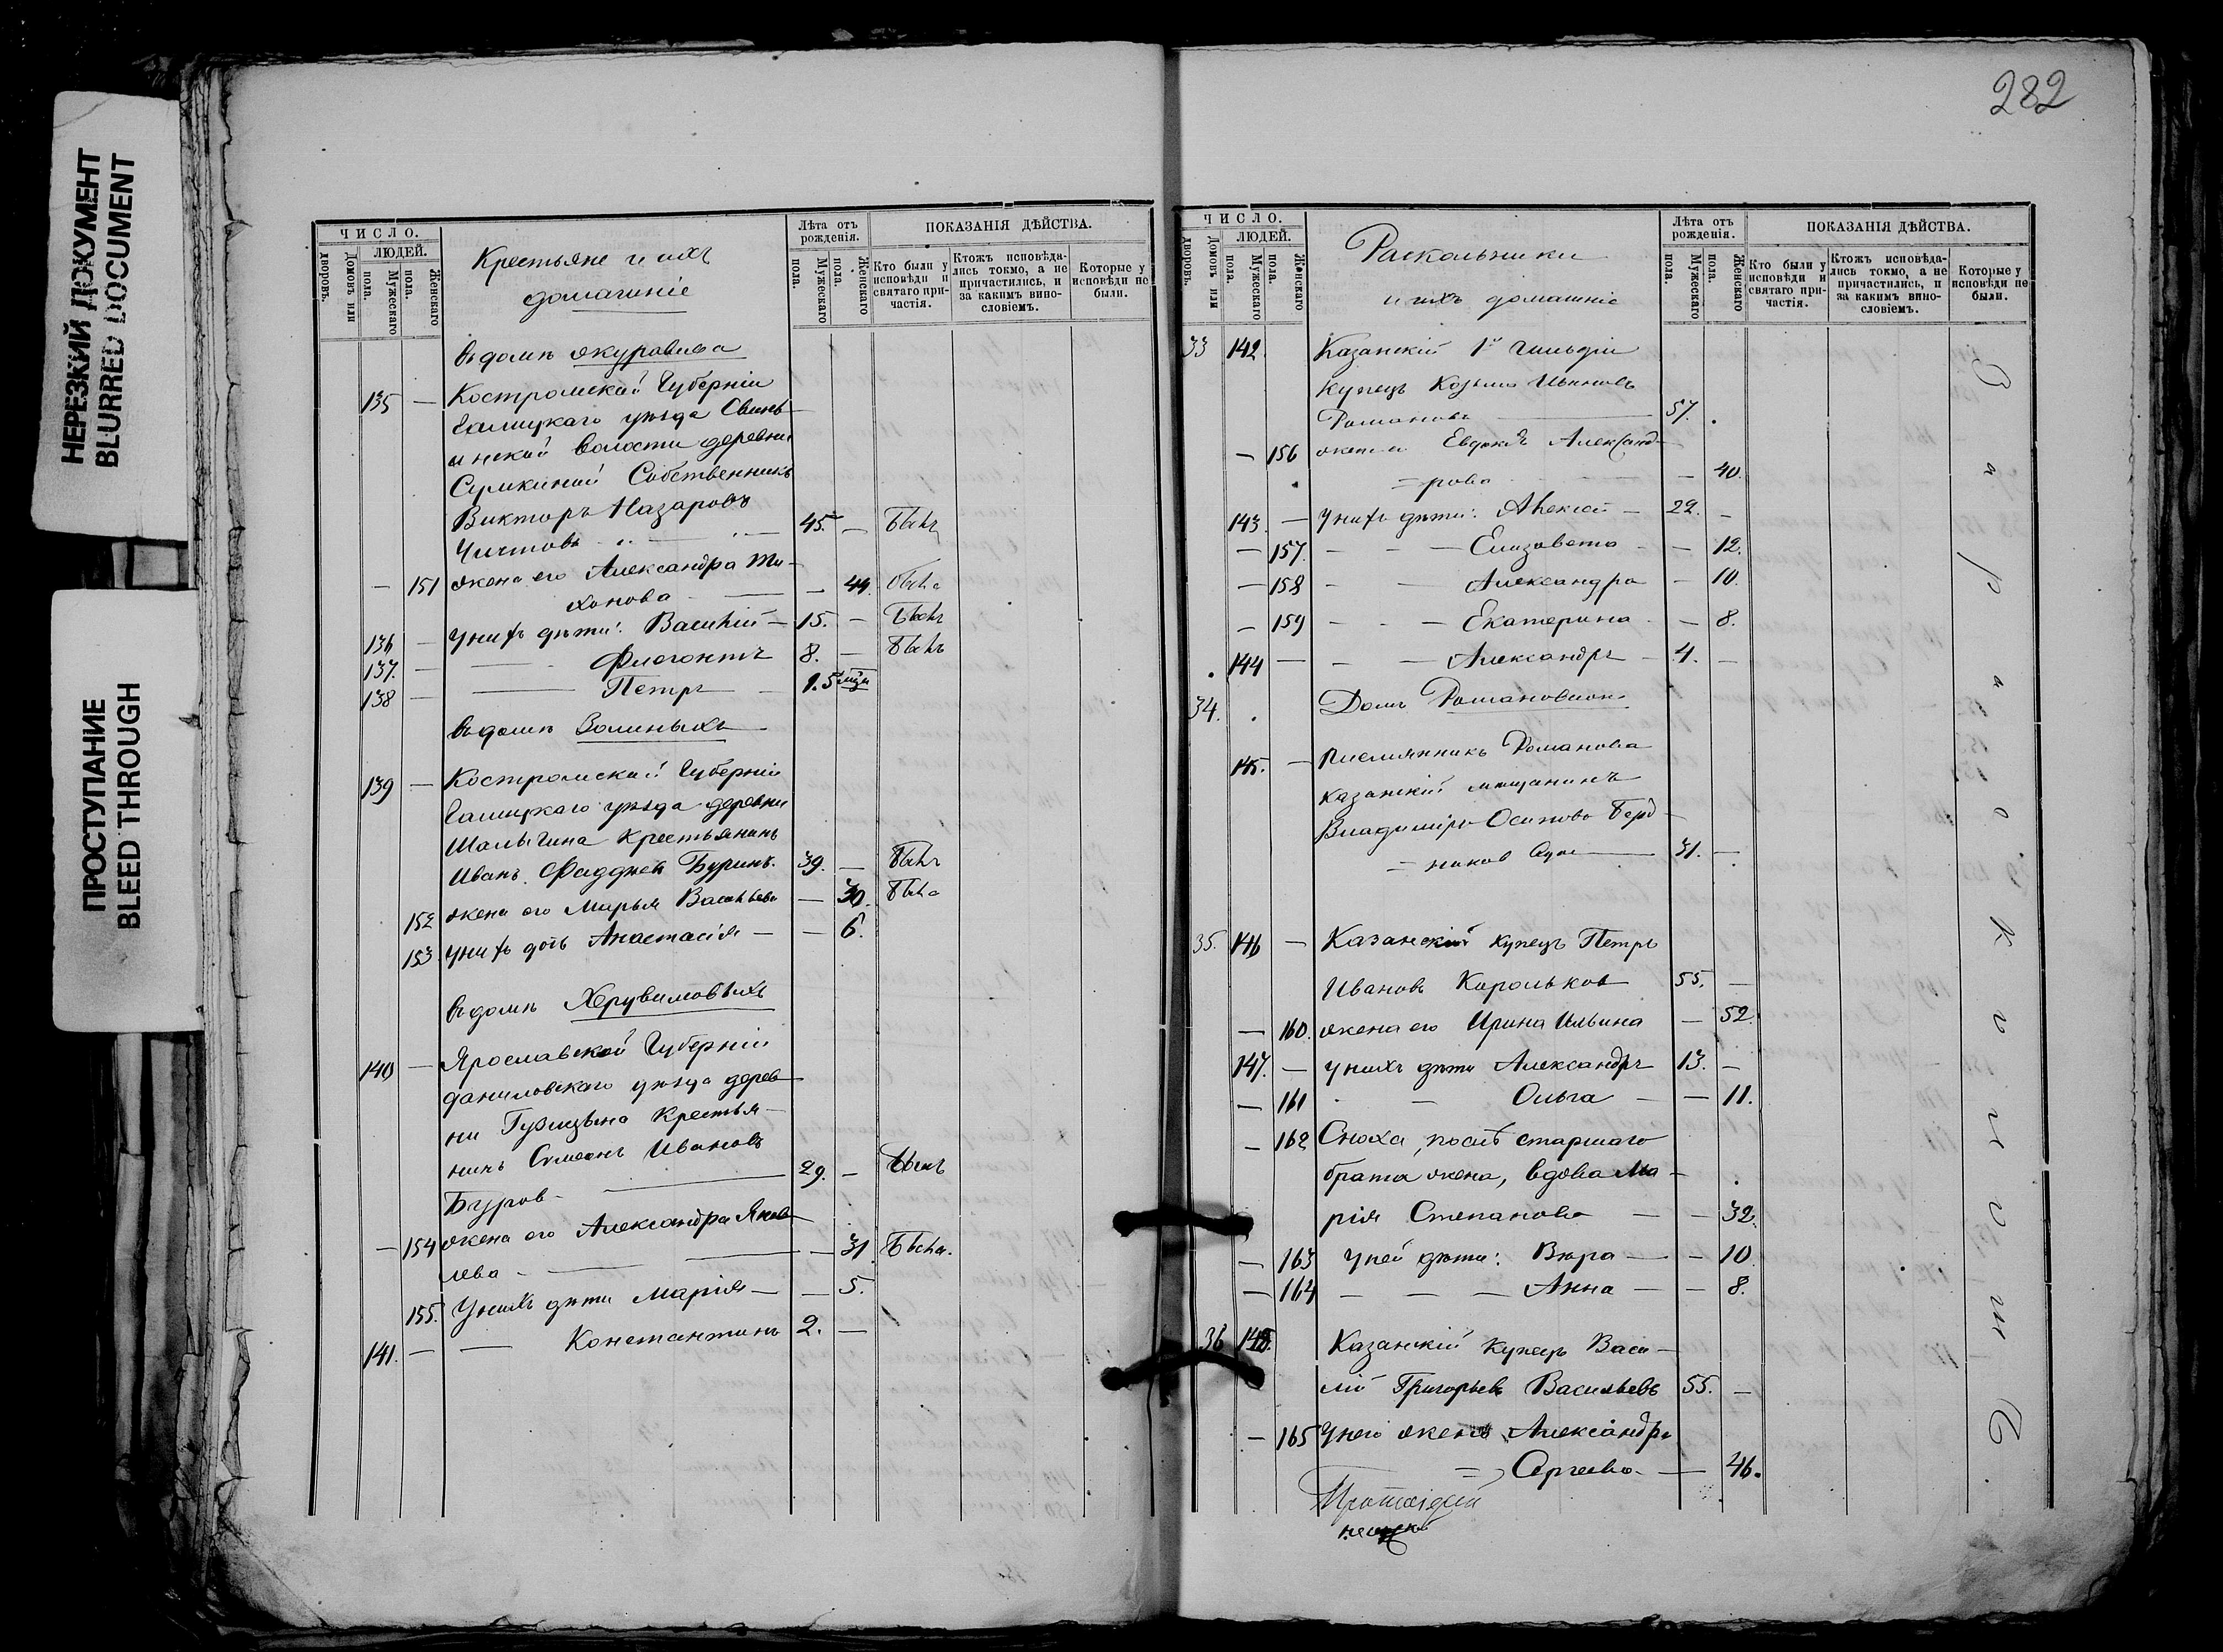 НЕРЕЗКИЙ ДОКУМЕНТ
BLURRED DOCUMENT
ПРОСТУПАНИЕ
BLEED THROUGH
ЧИСЛО.
ЛЮДЕЙ.
Домовъ или дворовъ.
Мужескаго пола.
Женскаго пола.
Крестьяне и ихъ
домашніе
Лѣта отъ рожденія.
Мужескаго пола.
Женскаго пола.
ПОКАЗАНІЯ ДѢЙСТВА.
Кто были у исповѣди и святаго причастія.
Ктожъ исповѣдались токмо, а не причастились, и за какимъ винословіемъ.
Которые у исповѣди не были.
въ домѣ Журавлева
135 — Костромской Губерніи
Галицкаго уѣзда Свинь-
инской волости деревни
Собственникъ
Викторъ Назаровъ
Чистовъ 45. — Былъ
— 151 жена его Александра Ти-
хонова — 44. была
136 — У нихъ дѣти: Василій — 15. — Былъ
137. — Флегонтъ 8. — Былъ
138 — Петръ — 1.5 мѣц
въ домѣ Золиныхъ
139 — Костромской Губерніи
Галицкаго уѣзда деревни
Шалыгина Крестьянинъ
Иванъ Фаддѣевъ Буринъ. 39. — Былъ
152 жена его Марья Васильева — 30. Была
153 У нихъ дочь Анастасія — — 6.
въ домѣ Херувимовыхъ
140 — Ярославской Губерніи
Даниловскаго уѣзда дерев-
ни Крестья-
нинъ Симеонъ Ивановъ
Буров — 29. — Былъ
— 154 жена его Александра Яков-
лева — — 31. Была.
155. У нихъ дѣти Марія — — 5.
141. — — Константинъ 2. —
282
ЧИСЛО.
ЛЮДЕЙ.
Домовъ или дворовъ.
Мужескаго пола.
Женскаго пола.
Раскольники
и ихъ домашніе
Лѣта отъ рожденія.
Мужескаго пола.
Женскаго пола.
ПОКАЗАНІЯ ДѢЙСТВА.
Кто были у исповѣди и святаго причастія.
Ктожъ исповѣдались токмо, а не причастились, и за какимъ винословіемъ.
Которые у исповѣди не были.
33 142. Казанскій 1й Гильдіи
купецъ Козьма Ивановъ
Романовъ — 57.
— 156 жена Евдокія Александ-
рова — 40.
143. — У нихъ дѣти: Алексѣй — 22. —
— 157. — — Елизавета — 12.
— 158 — — Александра — 10.
— 159 — — Екатерина — 8.
144 — — — Александръ — 4. —
34. Домъ
145. — Племянникъ Романова
Казанскій мѣщанинъ
Владиміръ Осиповъ Берд-
никовъ 31. —
35. 146 — Казанскій купецъ Петръ
Ивановъ Корольков 55. —
— 160. жена его Ирина Ильина — 52.
147. — у нихъ дѣти Александръ 13. —
— 161 — Ольга — — 11.
— 162 Сноха, послѣ старшаго
брата жена, вдова Ма-
рія Степанова — — 32.
— 163 У ней дѣти: Вѣра — — 10.
— 164 — — — Анна — — 8.
36 148. Казанскій купецъ Васи-
лій Григорьевъ Васильевъ 55. —
— 165 У него жена Александра
Сергеева — — 46.
Раскольники